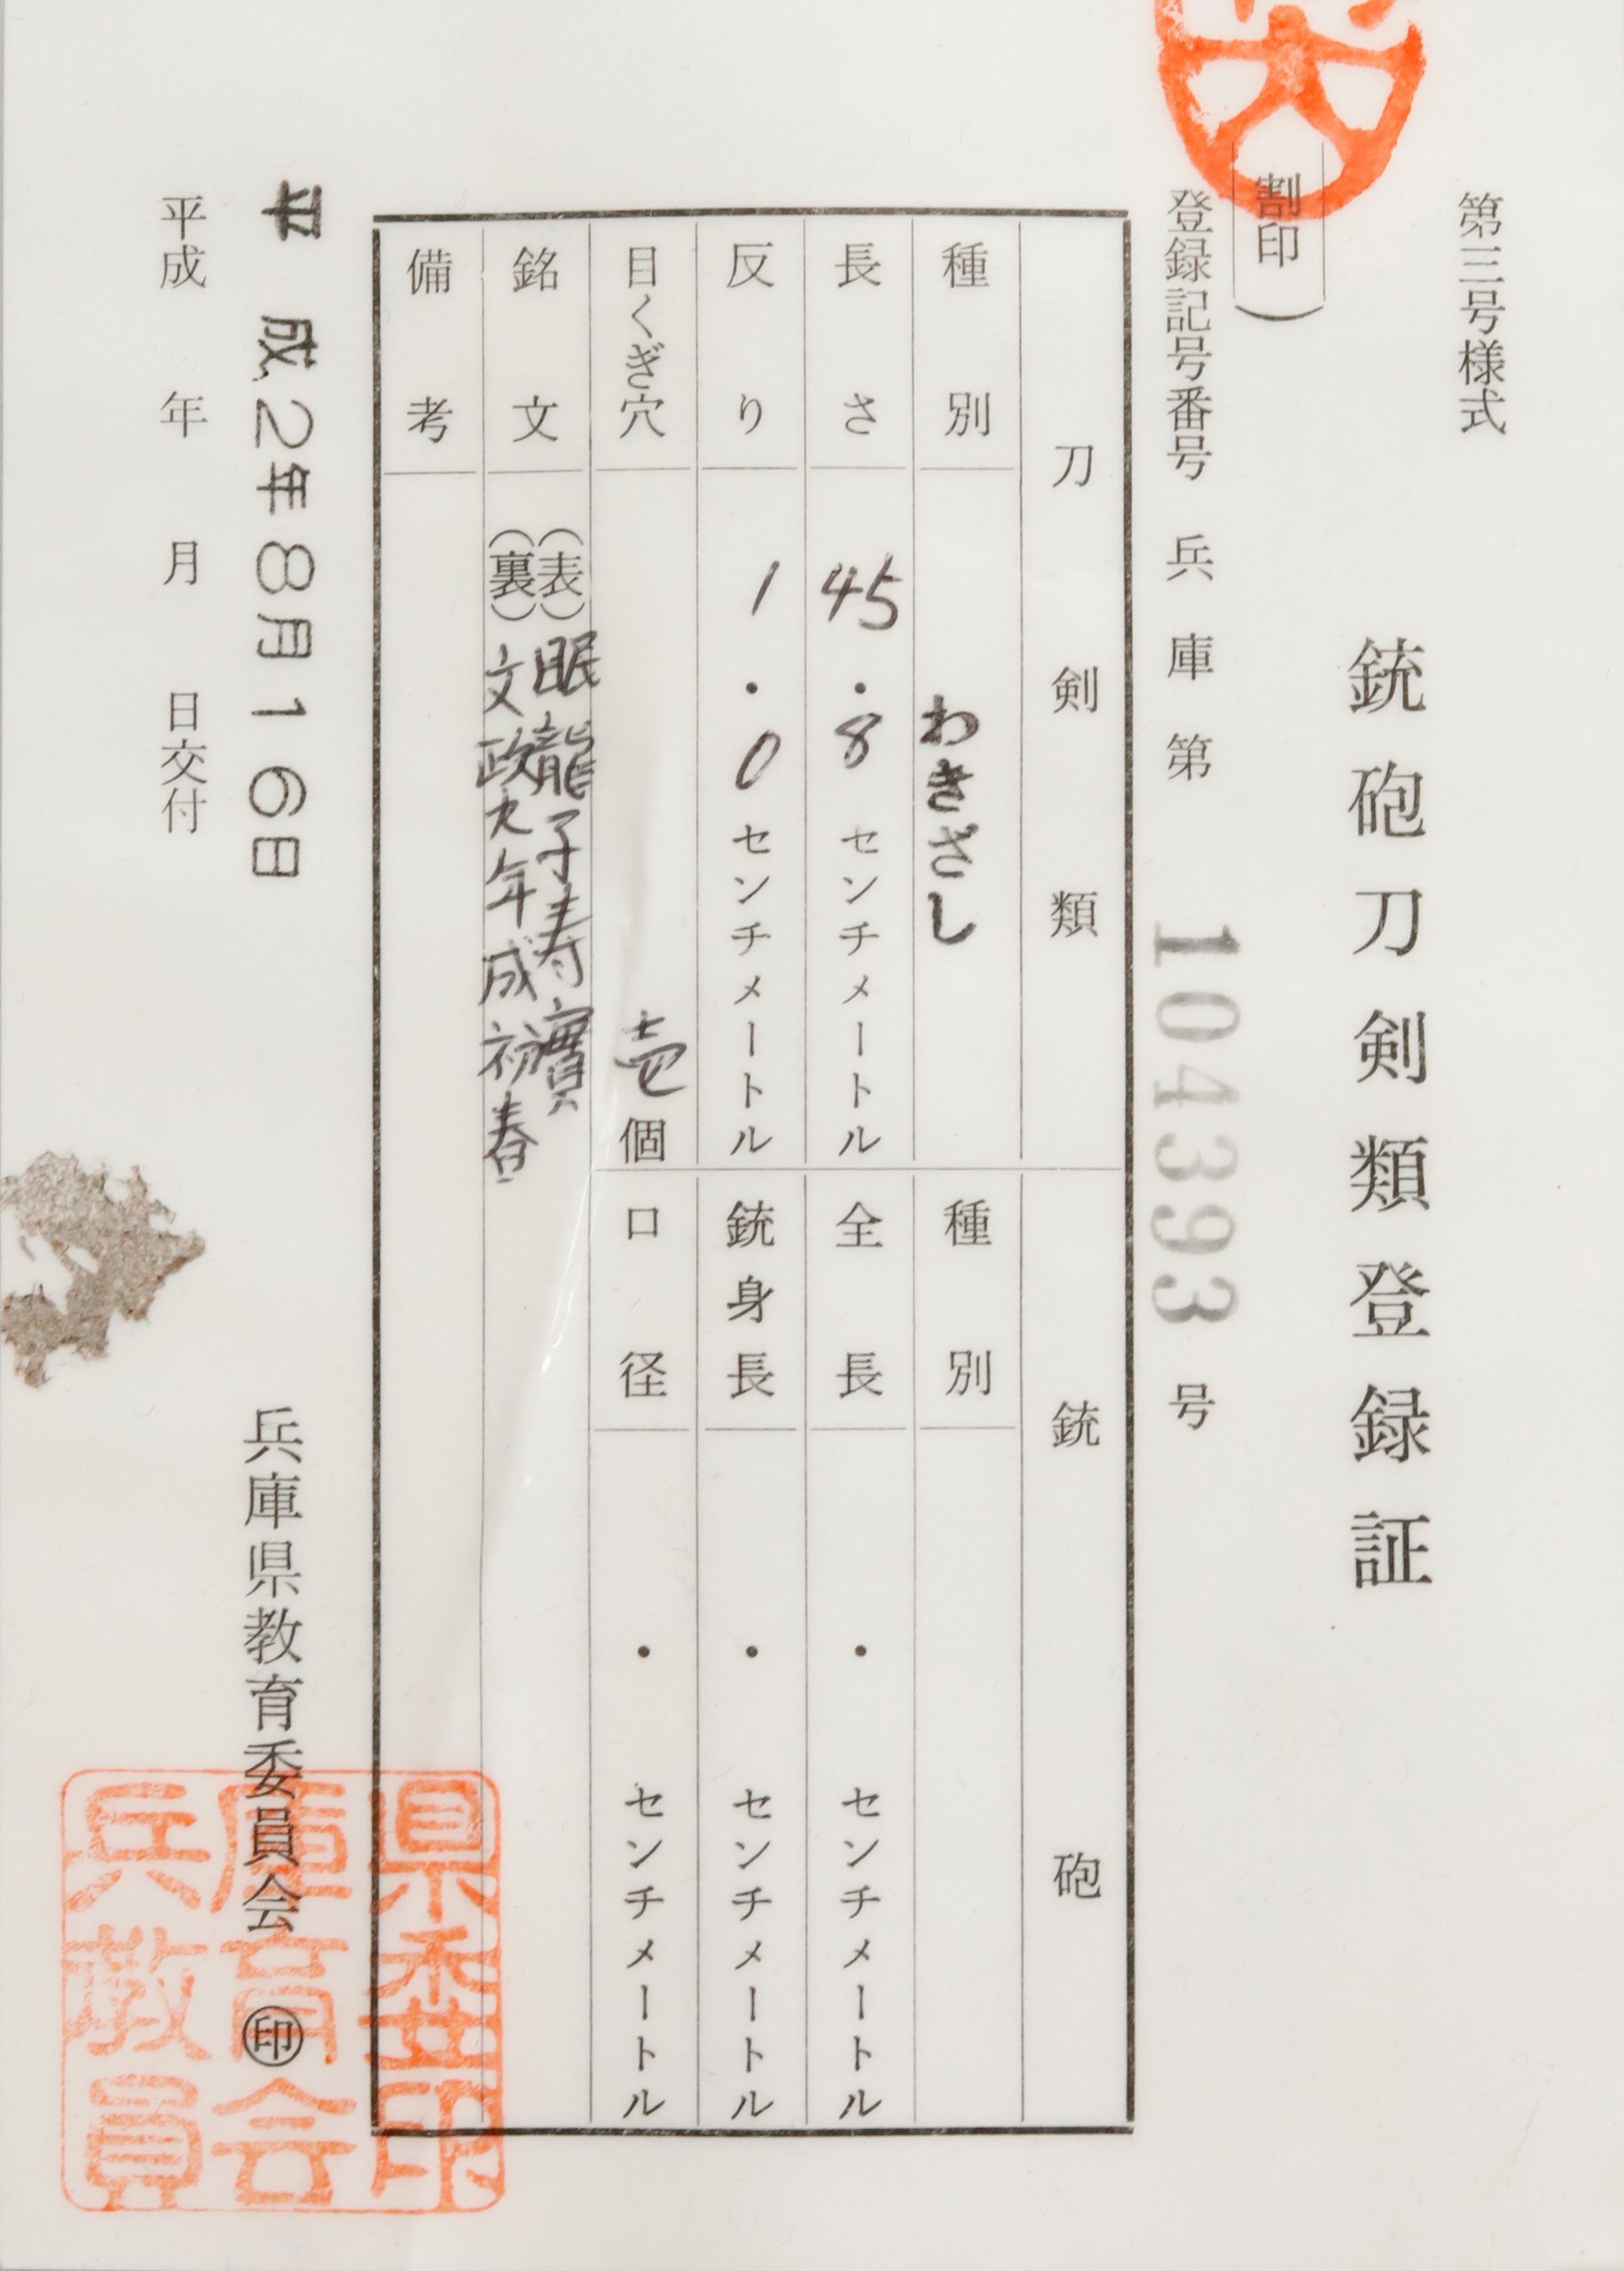 第三号様式
銃砲刀剣類登録証
(割印)
登録記号番号 兵庫第 104393 号
刀剣類
種別 わきざし
長さ 45.8 センチメートル
反り 1.0 センチメートル
目くぎ穴 壱個
銃砲
種別
全長 ・ センチメートル
銃身長 ・ センチメートル
口径 ・ センチメートル
銘文 (表) 眠龍子寿實
(裏) 文政九年成初春
備考
平成2年8月16日
平成 年 月 日交付
兵庫県教育委員会 ㊞
兵庫県
教育委
員会印